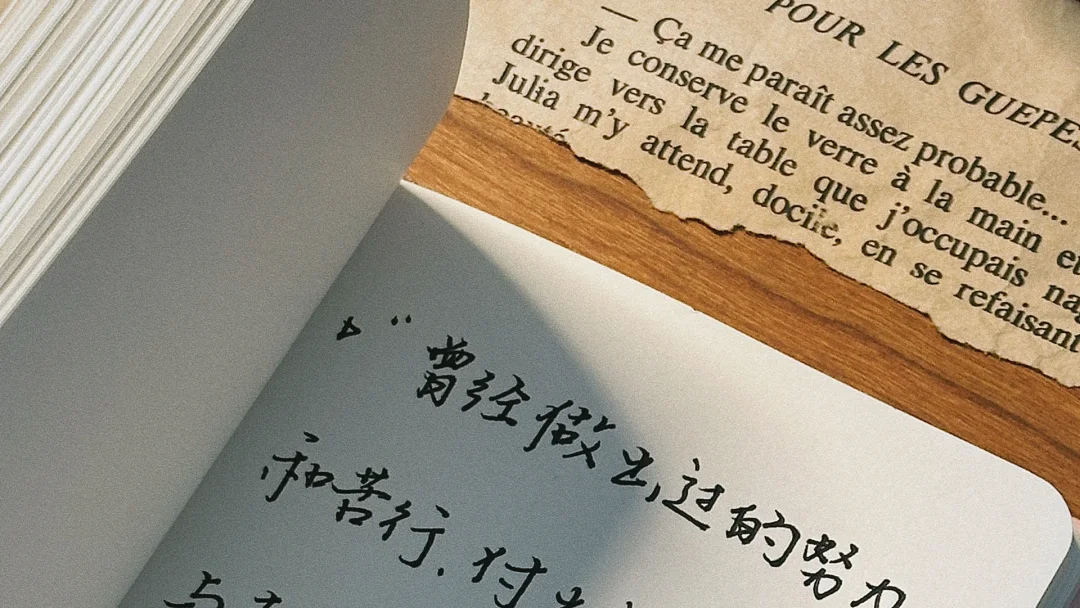 POUR LES GUEPES
— Ça me paraît assez probable...
Je conserve le verre à la main et
dirige vers la table que j'occupais na
Julia m'y attend, docile, en se refaisant
beauté.
“曾经做出过的努力
和苦行，对
与